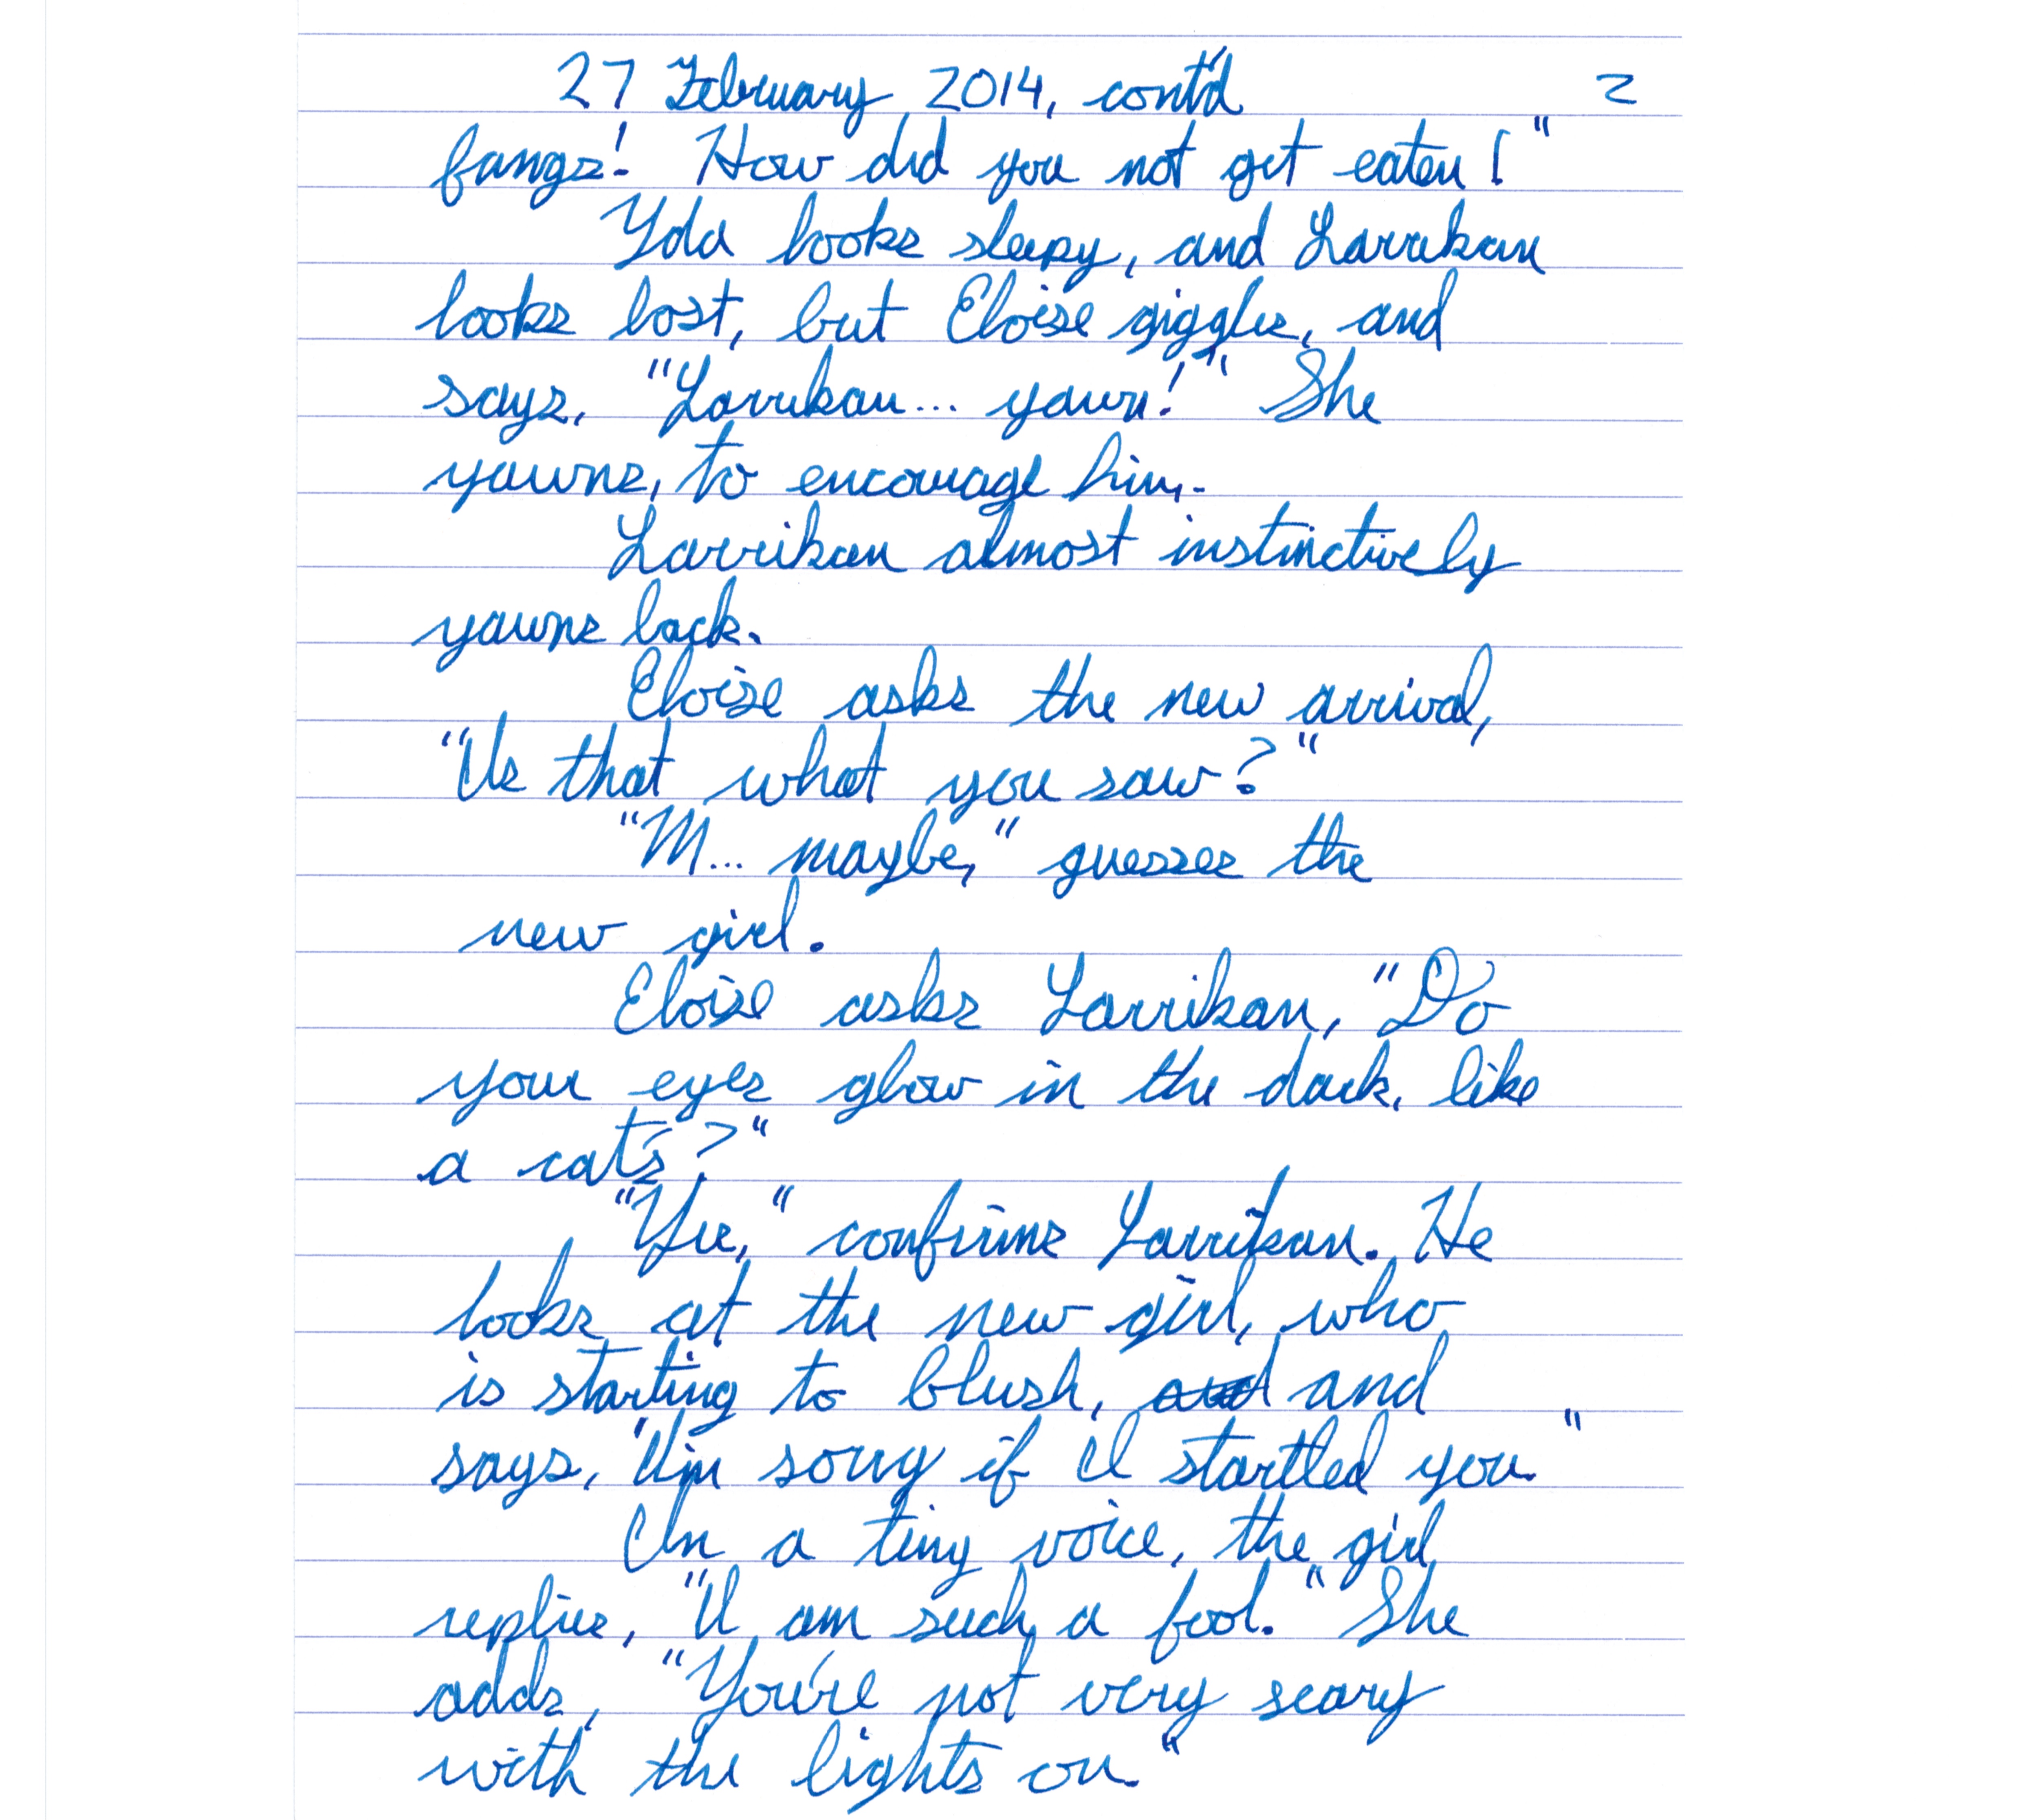 27 February 2014, cont'd 2
fangs! How did you not get eaten!"
Yda looks sleepy, and Larrikan
looks lost, but Eloise giggles, and
says, "Larrikan... yawn!" She
yawns, to encourage him.
Larrikan almost instinctively
yawns back.
Eloise asks the new arrival,
"Is that what you saw?"
"M... maybe," guesses the
new girl.
Eloise asks Larrikan, "Do
your eyes glow in the dark, like
a cat's?"
"Yes," confirms Larrikan. He
looks at the new girl, who
is starting to blush, and and
says, "I'm sorry if I startled you."
In a tiny voice, the girl
replies, "I am such a fool." She
adds, "You're not very scary
with the lights on."